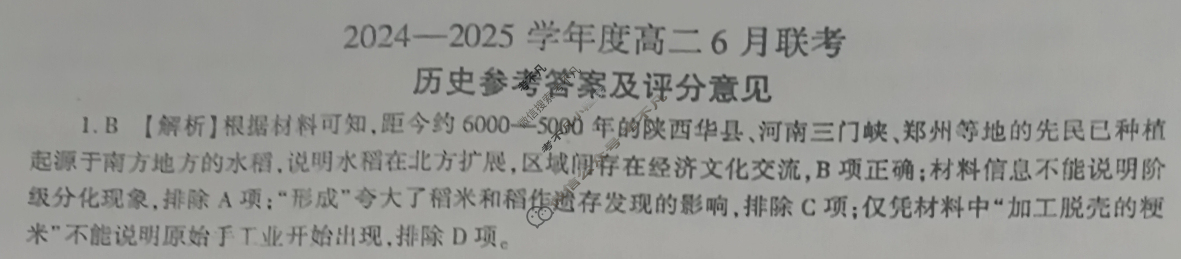 2024—2025 学年度高二 6 月联考
历史参考答案及评分意见
1.B 【解析】根据材料可知,距今约 6000—5000 年的陕西华县、河南三门峡、郑州等地的先民已种植
起源于南方地方的水稻,说明水稻在北方扩展,区域间存在经济文化交流,B 项正确;材料信息不能说明阶
级分化现象,排除 A 项;“形成”夸大了稻米和稻作遗存发现的影响,排除 C 项;仅凭材料中“加工脱壳的粳
米”不能说明原始手工业开始出现,排除 D 项。